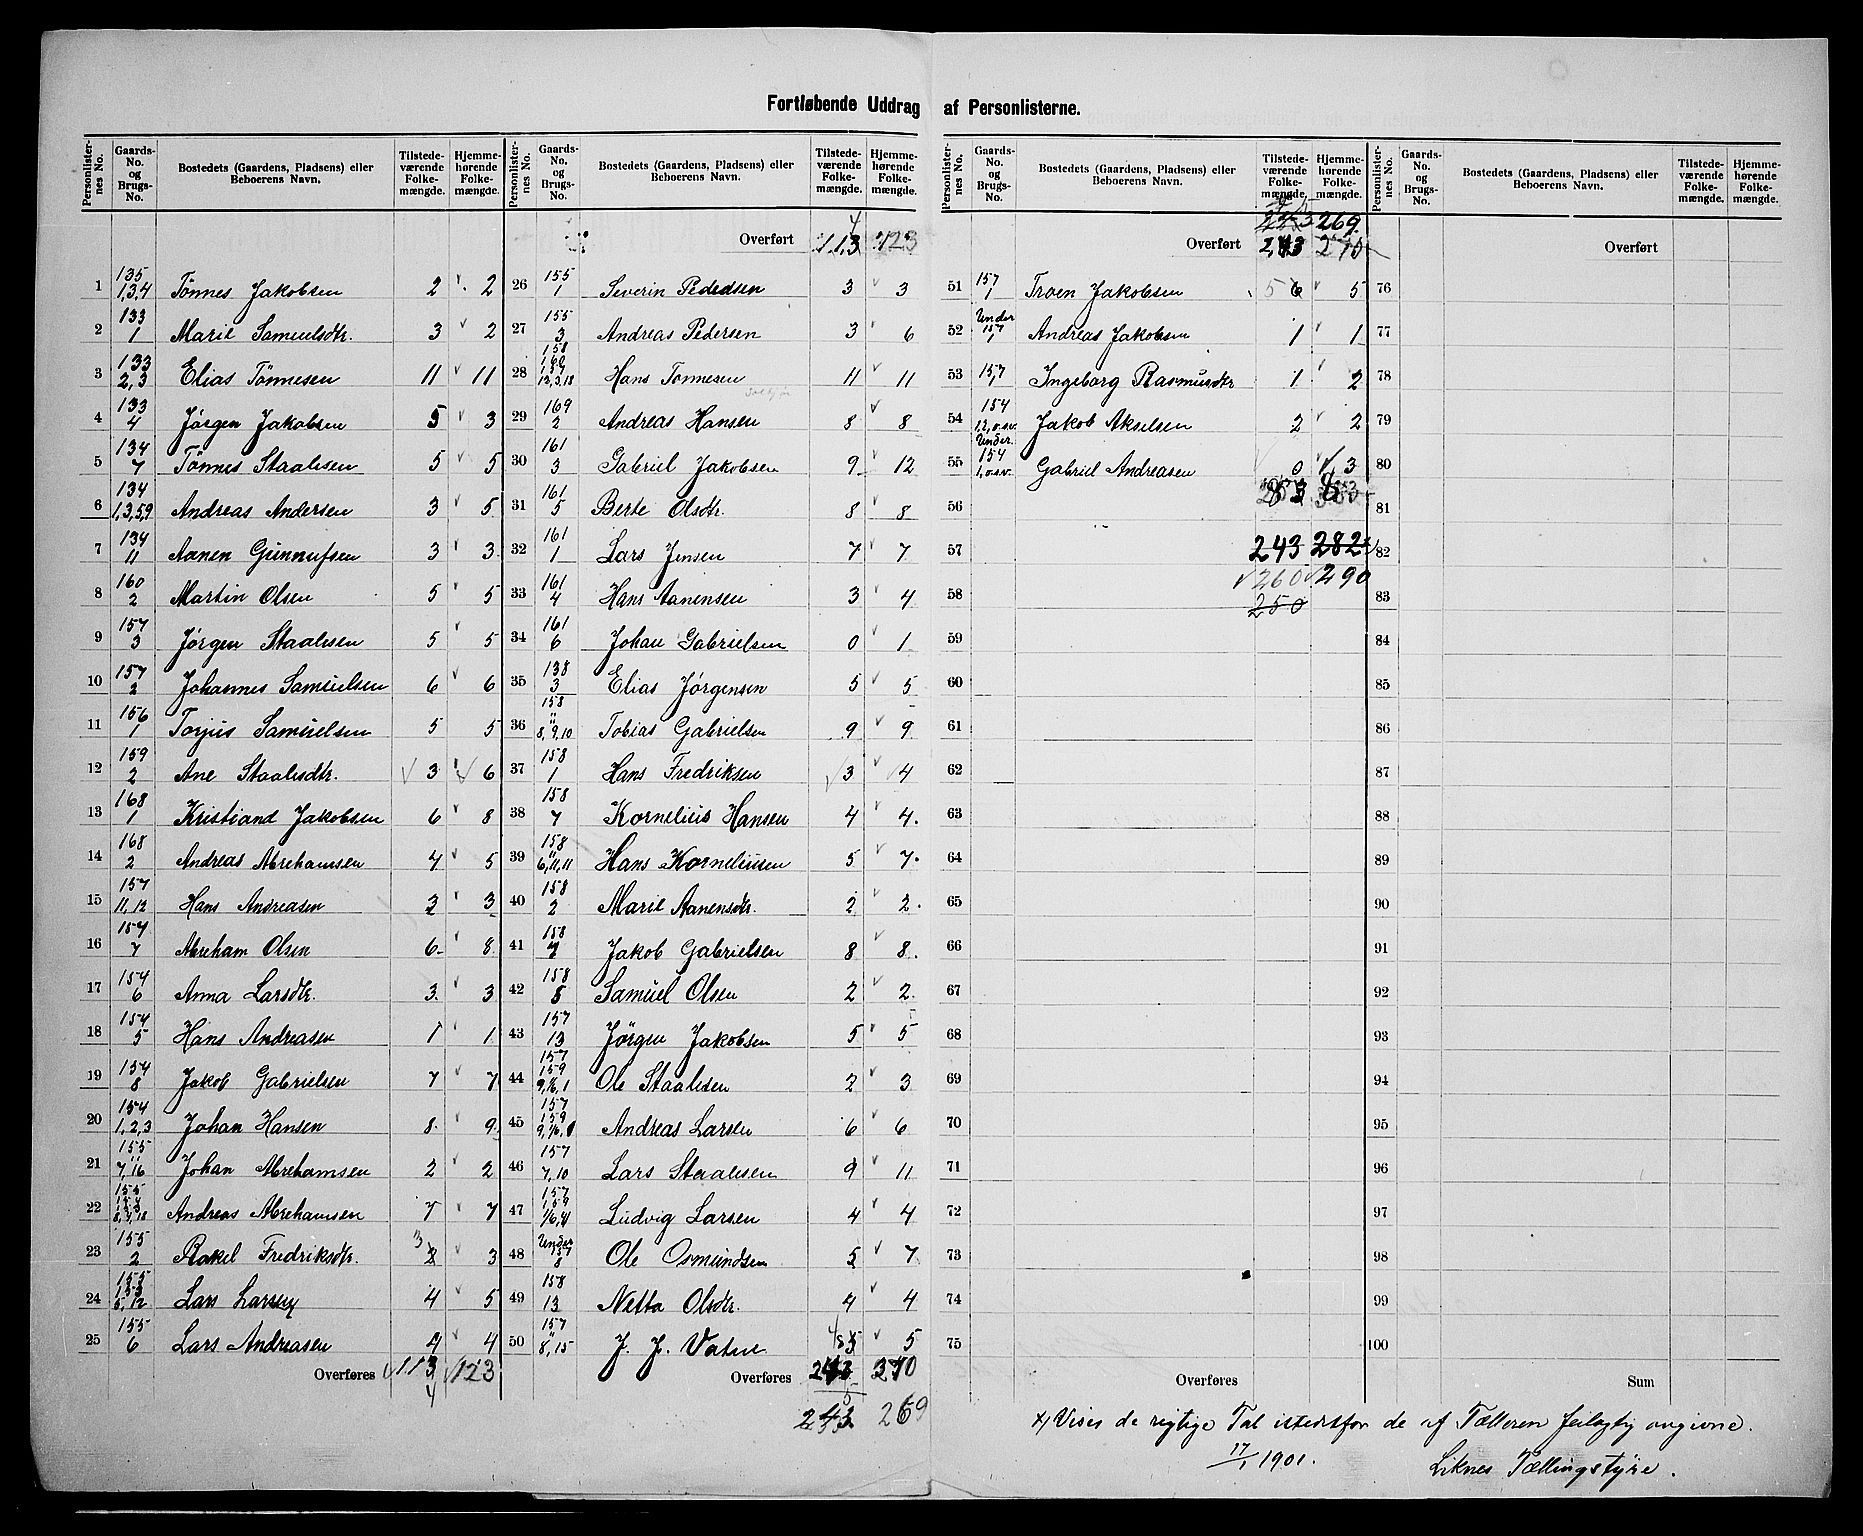 Fortløbende Uddrag af Personlisterne.
Personlister-nes No. Gaards-No. og Brugs-No. Bostedets (Gaardens, Pladsens) eller Beboerens Navn. Tilstede-værende Folke-mængde. Hjemme-hørende Folke-mængde.
Personlister-nes No. Gaards-No. og Brugs-No. Bostedets (Gaardens, Pladsens) eller Beboerens Navn. Tilstede-værende Folke-mængde. Hjemme-hørende Folke-mængde.
Personlister-nes No. Gaards-No. og Brugs-No. Bostedets (Gaardens, Pladsens) eller Beboerens Navn. Tilstede-værende Folke-mængde. Hjemme-hørende Folke-mængde.
Personlister-nes No. Gaards-No. og Brugs-No. Bostedets (Gaardens, Pladsens) eller Beboerens Navn. Tilstede-værende Folke-mængde. Hjemme-hørende Folke-mængde.
1 135 1,3,4 Tönnes Jakobsen 2 2
2 133 1 Marie Samuelsdtr. 3 2
3 133 2,3 Elias Tönnesen 11 11
4 133 4 Jørgen Jakobsen 5 3
5 134 7 Tönnes Staalesen 5 5
6 134 1,3,5,9 Andreas Andersen 3 5
7 134 11 Aanen Gunnufsen 3 3
8 160 2 Martin Olsen 5 5
9 157 3 Jørgen Staalesen 5 5
10 157 2 Johannes Samuelsen 6 6
11 156 1 Torjus Samuelsen 5 5
12 159 2 Ane Staalesdtr. 3 6
13 168 1 Kristiand Jakobsen 6 8
14 168 2 Andreas Abrehamsen 4 5
15 157 11,12 Hans Andreasen 3 3
16 154 7 Abreham Olsen 6 8
17 154 6 Anna Larsdtr. 3 3
18 154 5 Hans Andreasen 1 1
19 154 8 Jakob Gabrielsen 7 7
20 154 1,2,3 Johan Hansen 8 9
21 155 7,16 Johan Abrehamsen 2 2
22 155 Andreas Abrehamsen 7 7
23 155 2 Rakel Fredriksdtr. 3 2 3
24 155 5,12 Lars Larsen 4 5
25 155 6 Lars Andreasen 4 4
Overføres 113 123
4
Overført 113 123
26 155 1 Severin Pedersen 3 3
27 155 3 Andreas Pedersen 3 6
28 158 160 Hans Tonnesen 11 11
29 169 2 Andreas Hansen 8 8
30 161 3 Gabriel Jakobsen 9 12
31 161 5 Berte Olsdtr. 8 8
32 161 1 Lars Jensen 7 7
33 161 4 Hans Aanensen 3 4
34 161 6 Johan Gabrielsen 0 1
35 138 3 Elias Jørgensen 5 5
36 158 8,9,10 Tobias Gabrielsen 9 9
37 158 1 Hans Fredriksen 3 4
38 158 7 Kornelius Hansen 4 4.
39 158 6,11,11 Hans Korneliusen 5 7.
40 158 2 Marie Aanensdtr. 2 2.
41 158 Jakob Gabrielsen 8 8.
42 158 8 Samuel Olsen 2 2.
43 157 13 Jørgen Jakobsen 5 5
44 157 159 Ole Staalesen 2 3
45 157 159 Andreas Larsen 6 6
46 157 7,10 Lars Staalesen 9 11
47 157 159 Ludvig Larsen 4 4
48 Under 157 8 Ole Osmundsen 5 7
49 158 13 Netta Olsdtr. 4 4
50 157 8,15 J. J. Vatne 5 5
Overføres 243 270
243 269
269
Overført 243 270
51 157 1 Troen Jakobsen 5 6 5
52 Under 157 1 Andreas Jakobsen 1 1
53 157 1 Ingeborg Rasmusdtr 1 2
54 154 1,2,o.sv. Jakob Akselsen 2 2
55 Under 154 1,o.sv. Gabriel Andreasen 0 3
56
57 243 282
260 290
58 250
59
60
61
62
63
64
65
66
67
68
69
70
71
72
73
74
75
Overføres
Overført
76
77
78
79
80
81
82
83
84
85
86
87
88
89
90
91
92
93
94
95
96
97
98
99
100
Sum
x) Vises de rigtige Tal istedetfor de af Tælleren feilagtig angivne.
17/1 1901. Liknes Tællingstyre.